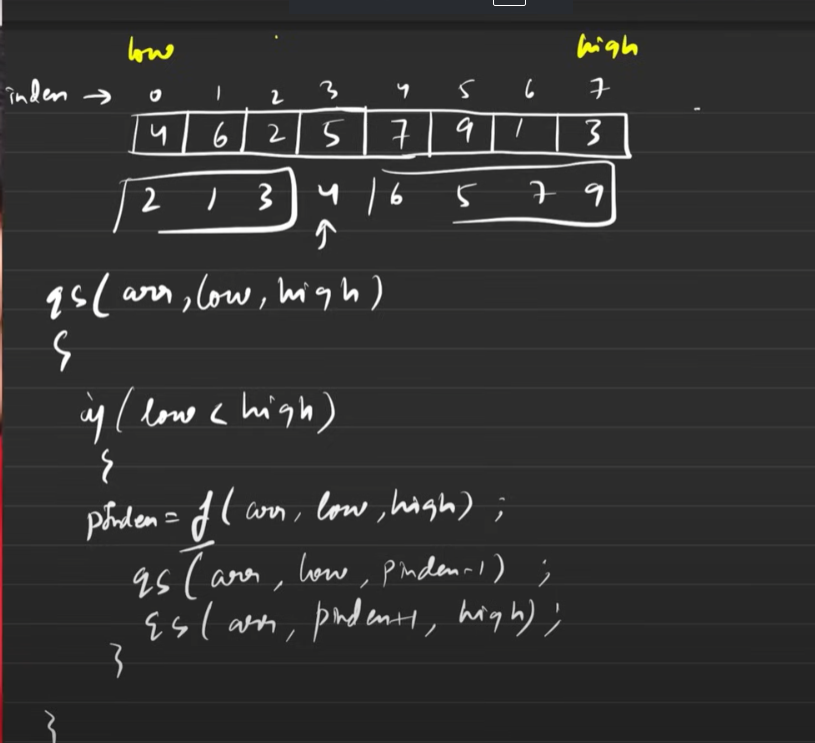 low high
index → 0 1 2 3 4 5 6 7
4 6 2 5 7 9 1 3
2 1 3 4 6 5 7 9
↑
qs(arr, low, high)
{
if (low < high)
{
pIndex = f(arr, low, high);
qs(arr, low, pIndex-1);
qs(arr, pIndex+1, high);
}
}